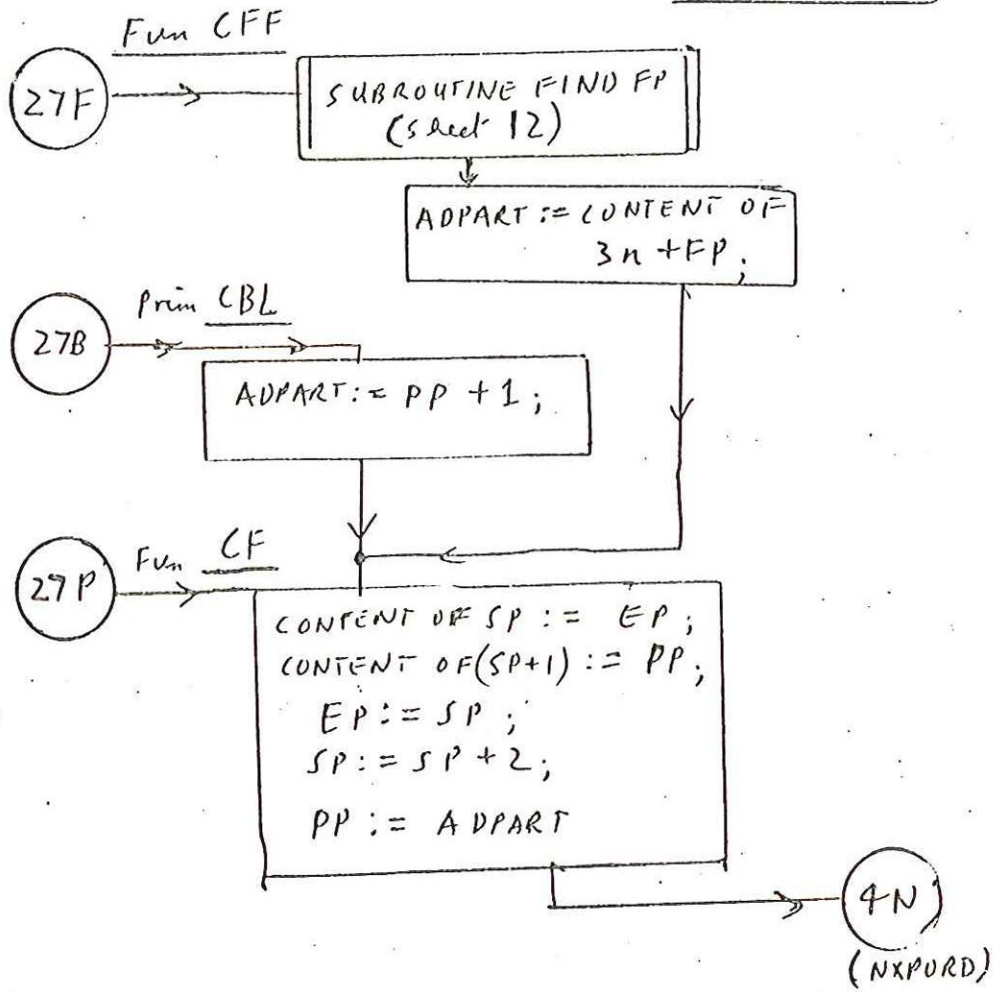 Fun CFF
27F
SUBROUTINE FIND FP
(sheet 12)
ADPART := CONTENT OF
3n + FP;
Prim CBL
27B
ADPART := PP + 1;
Fun CF
27P
CONTENT OF SP := EP;
CONTENT OF (SP+1) := PP;
EP := SP;
SP := SP + 2;
PP := ADPART
4N
(NXPORD)